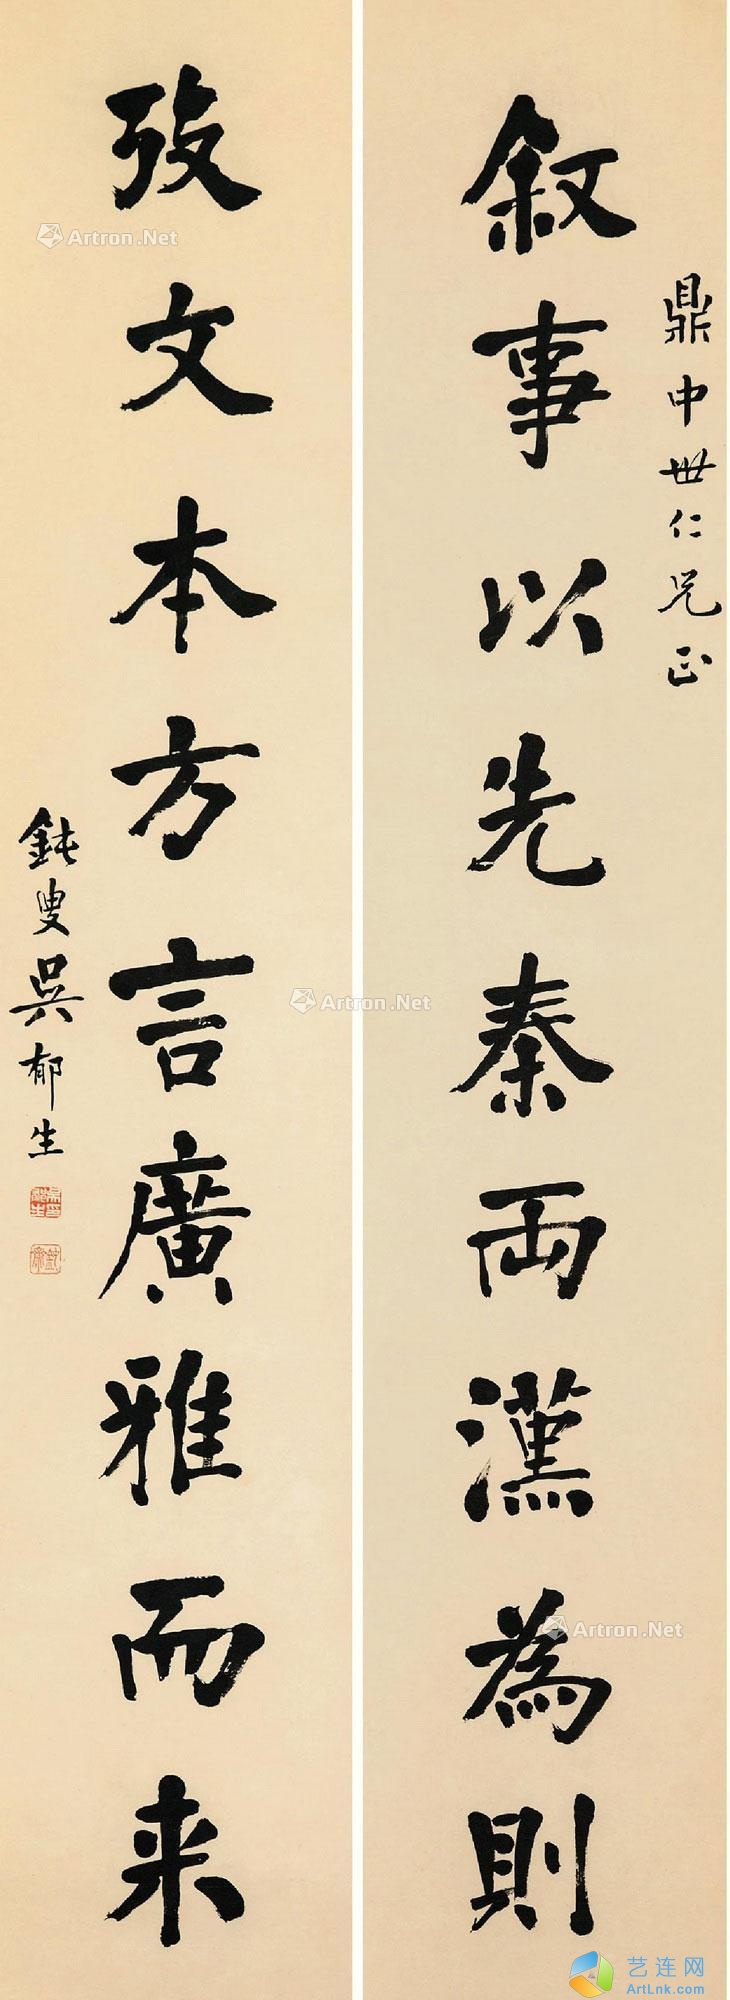 鼎中世仁兄正
叙事以先秦两漢為則
攷文本方言廣雅而来
鈍叟吳郁生
Artron.Net
Artron.Net
Artron.Net
艺连网
ArtLnk.com